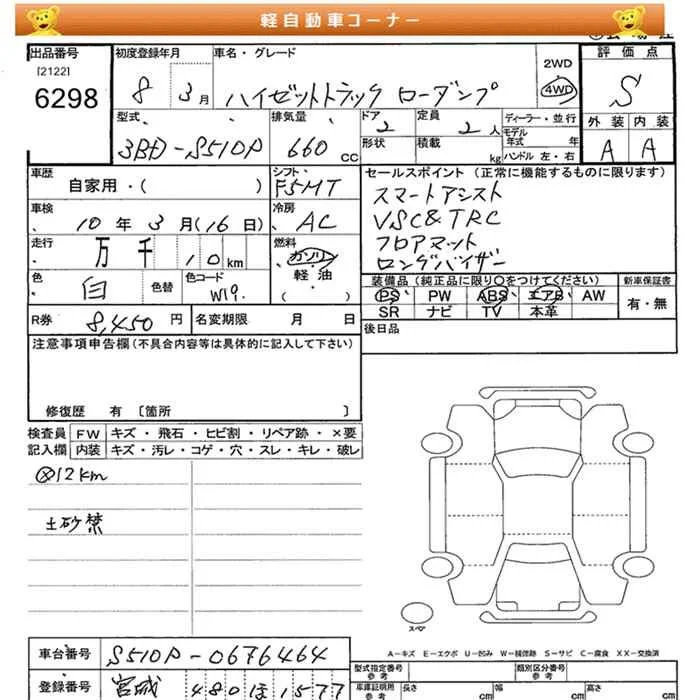 軽自動車コーナー
出品番号
[2122]
6298
初度登録年月
8 3月
車名・グレード
ハイゼットトラック ローダンプ
2WD
4WD
評価点
S
外装 内装
A A
型式
3BD-S510P
排気量
660 cc
ドア
2
定員
2 人
形状
積載
kg
ディーラー・並行
モデル
年式 年
ハンドル 左・右
車歴
自家用・( )
シフト
F5MT
車検
10年3月(16日)
冷房
AC
走行
万 千 10 km
燃料
ガソリン
軽・油
( )
色
白
色替
色コード
W19.
セールスポイント (正常に機能するものに限ります)
スマートアシスト
VSC&TRC
フロアマット
ロングバイザー
装備品 (純正品に限り○をつけてください)
新車保証書
PS PW ABS エアB AW
SR ナビ TV 本革
有・無
R券
8,450 円
名変期限 月 日
後日品
注意事項申告欄 (不具合内容等は具体的に記入して下さい)
修復歴 有 〔箇所 〕
検査員 FW キズ・飛石・ヒビ割・リペア跡・×要
記入欄 内装 キズ・汚レ・コゲ・穴・スレ・キレ・破レ
⊗12km
土砂禁
スペア
A-キズ E-エクボ U-凹み W-補修跡 S-サビ C-腐食 XX-交換済
車台番号
S510P-0676464
登録番号
宮城 480ほ1577
型式指定番号
参考
類別区分番号
参考
車庫証明用
参考
長さ cm
幅 cm
高さ cm